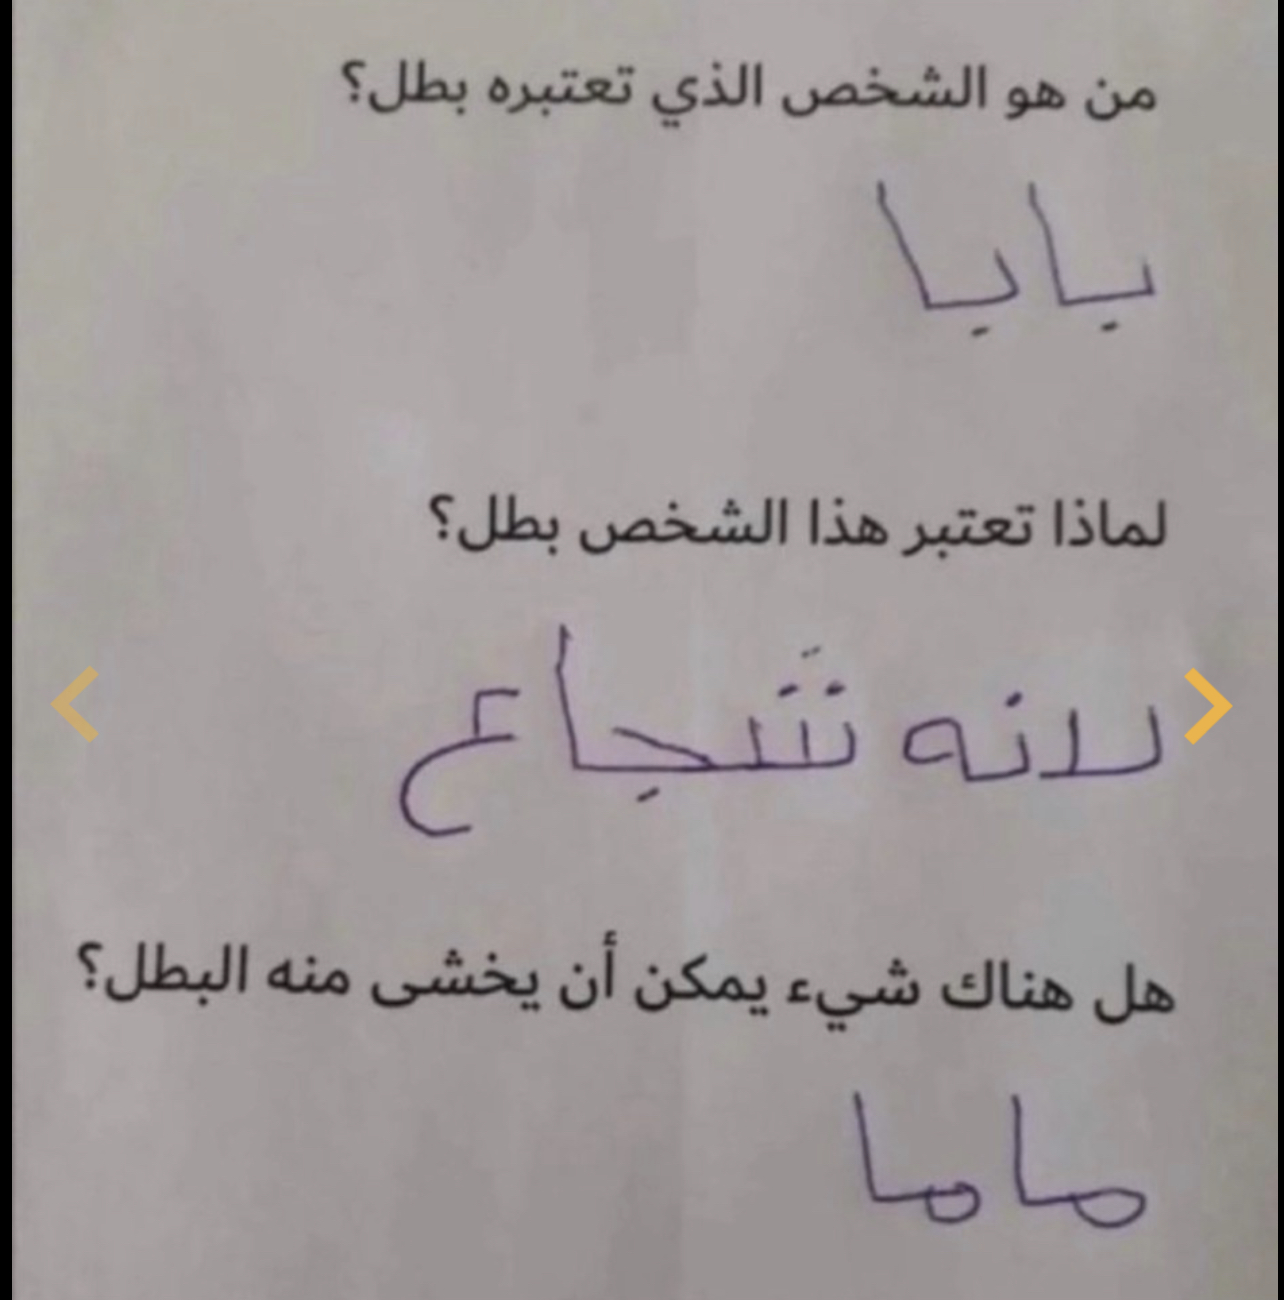 من هو الشخص الذي تعتبره بطل؟
بابا
لماذا تعتبر هذا الشخص بطل؟
لانه شجاع
هل هناك شيء يمكن أن يخشى منه البطل؟
ماما